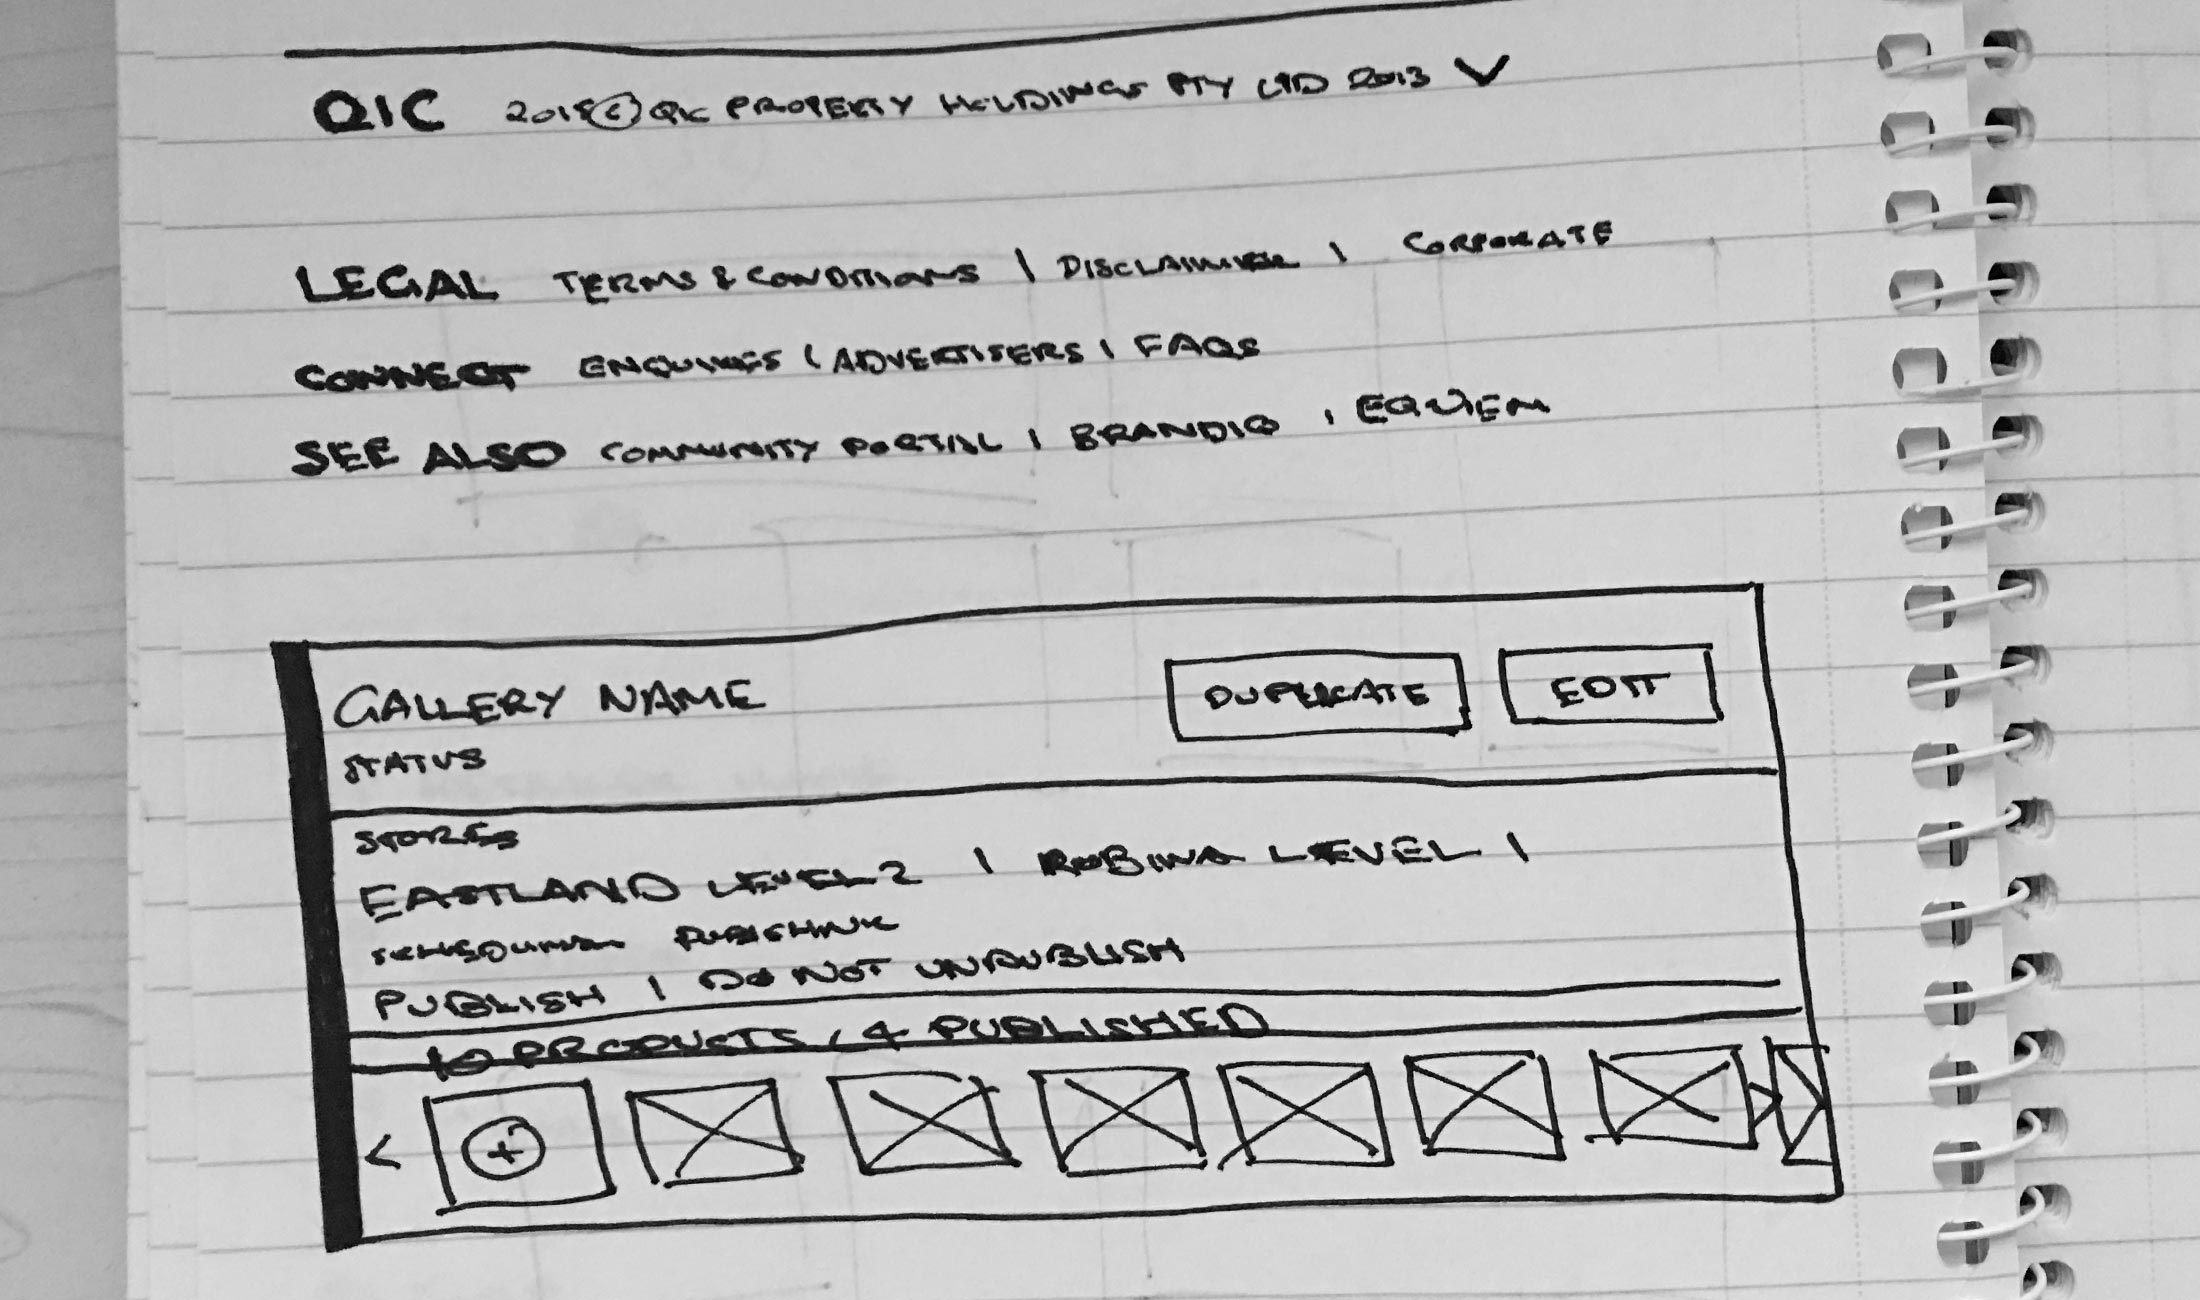 QIC 2018 © QIC PROPERTY HOLDINGS PTY LTD 2013
LEGAL TERMS & CONDITIONS | DISCLAIMER | CORPORATE
CONNECT ENQUIRIES | ADVERTISERS | FAQS
SEE ALSO COMMUNITY PORTAL | BRANDIQ | EQUIEM
GALLERY NAME DUPLICATE EDIT
STATUS
STORES
EASTLAND LEVEL 2 | ROBINA LEVEL 1
PUBLISHING
PUBLISH | DO NOT UNPUBLISH
10 PRODUCTS, 4 PUBLISHED